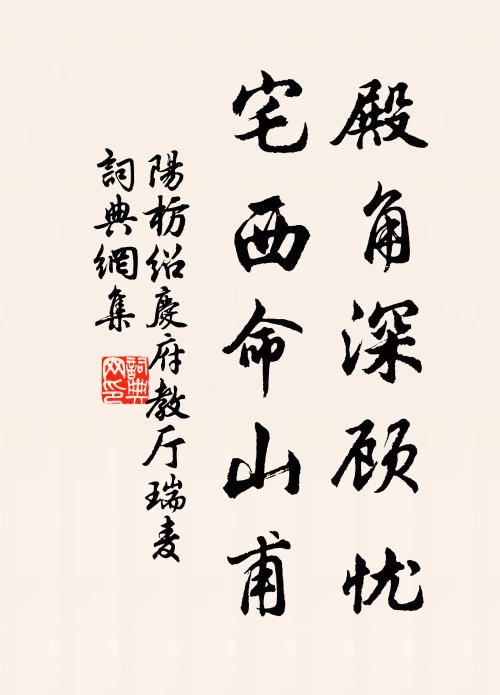 殿角深顾忧
宅西命山甫
陽枋绍慶府教厅瑞麦
詞典網集
詞典网印